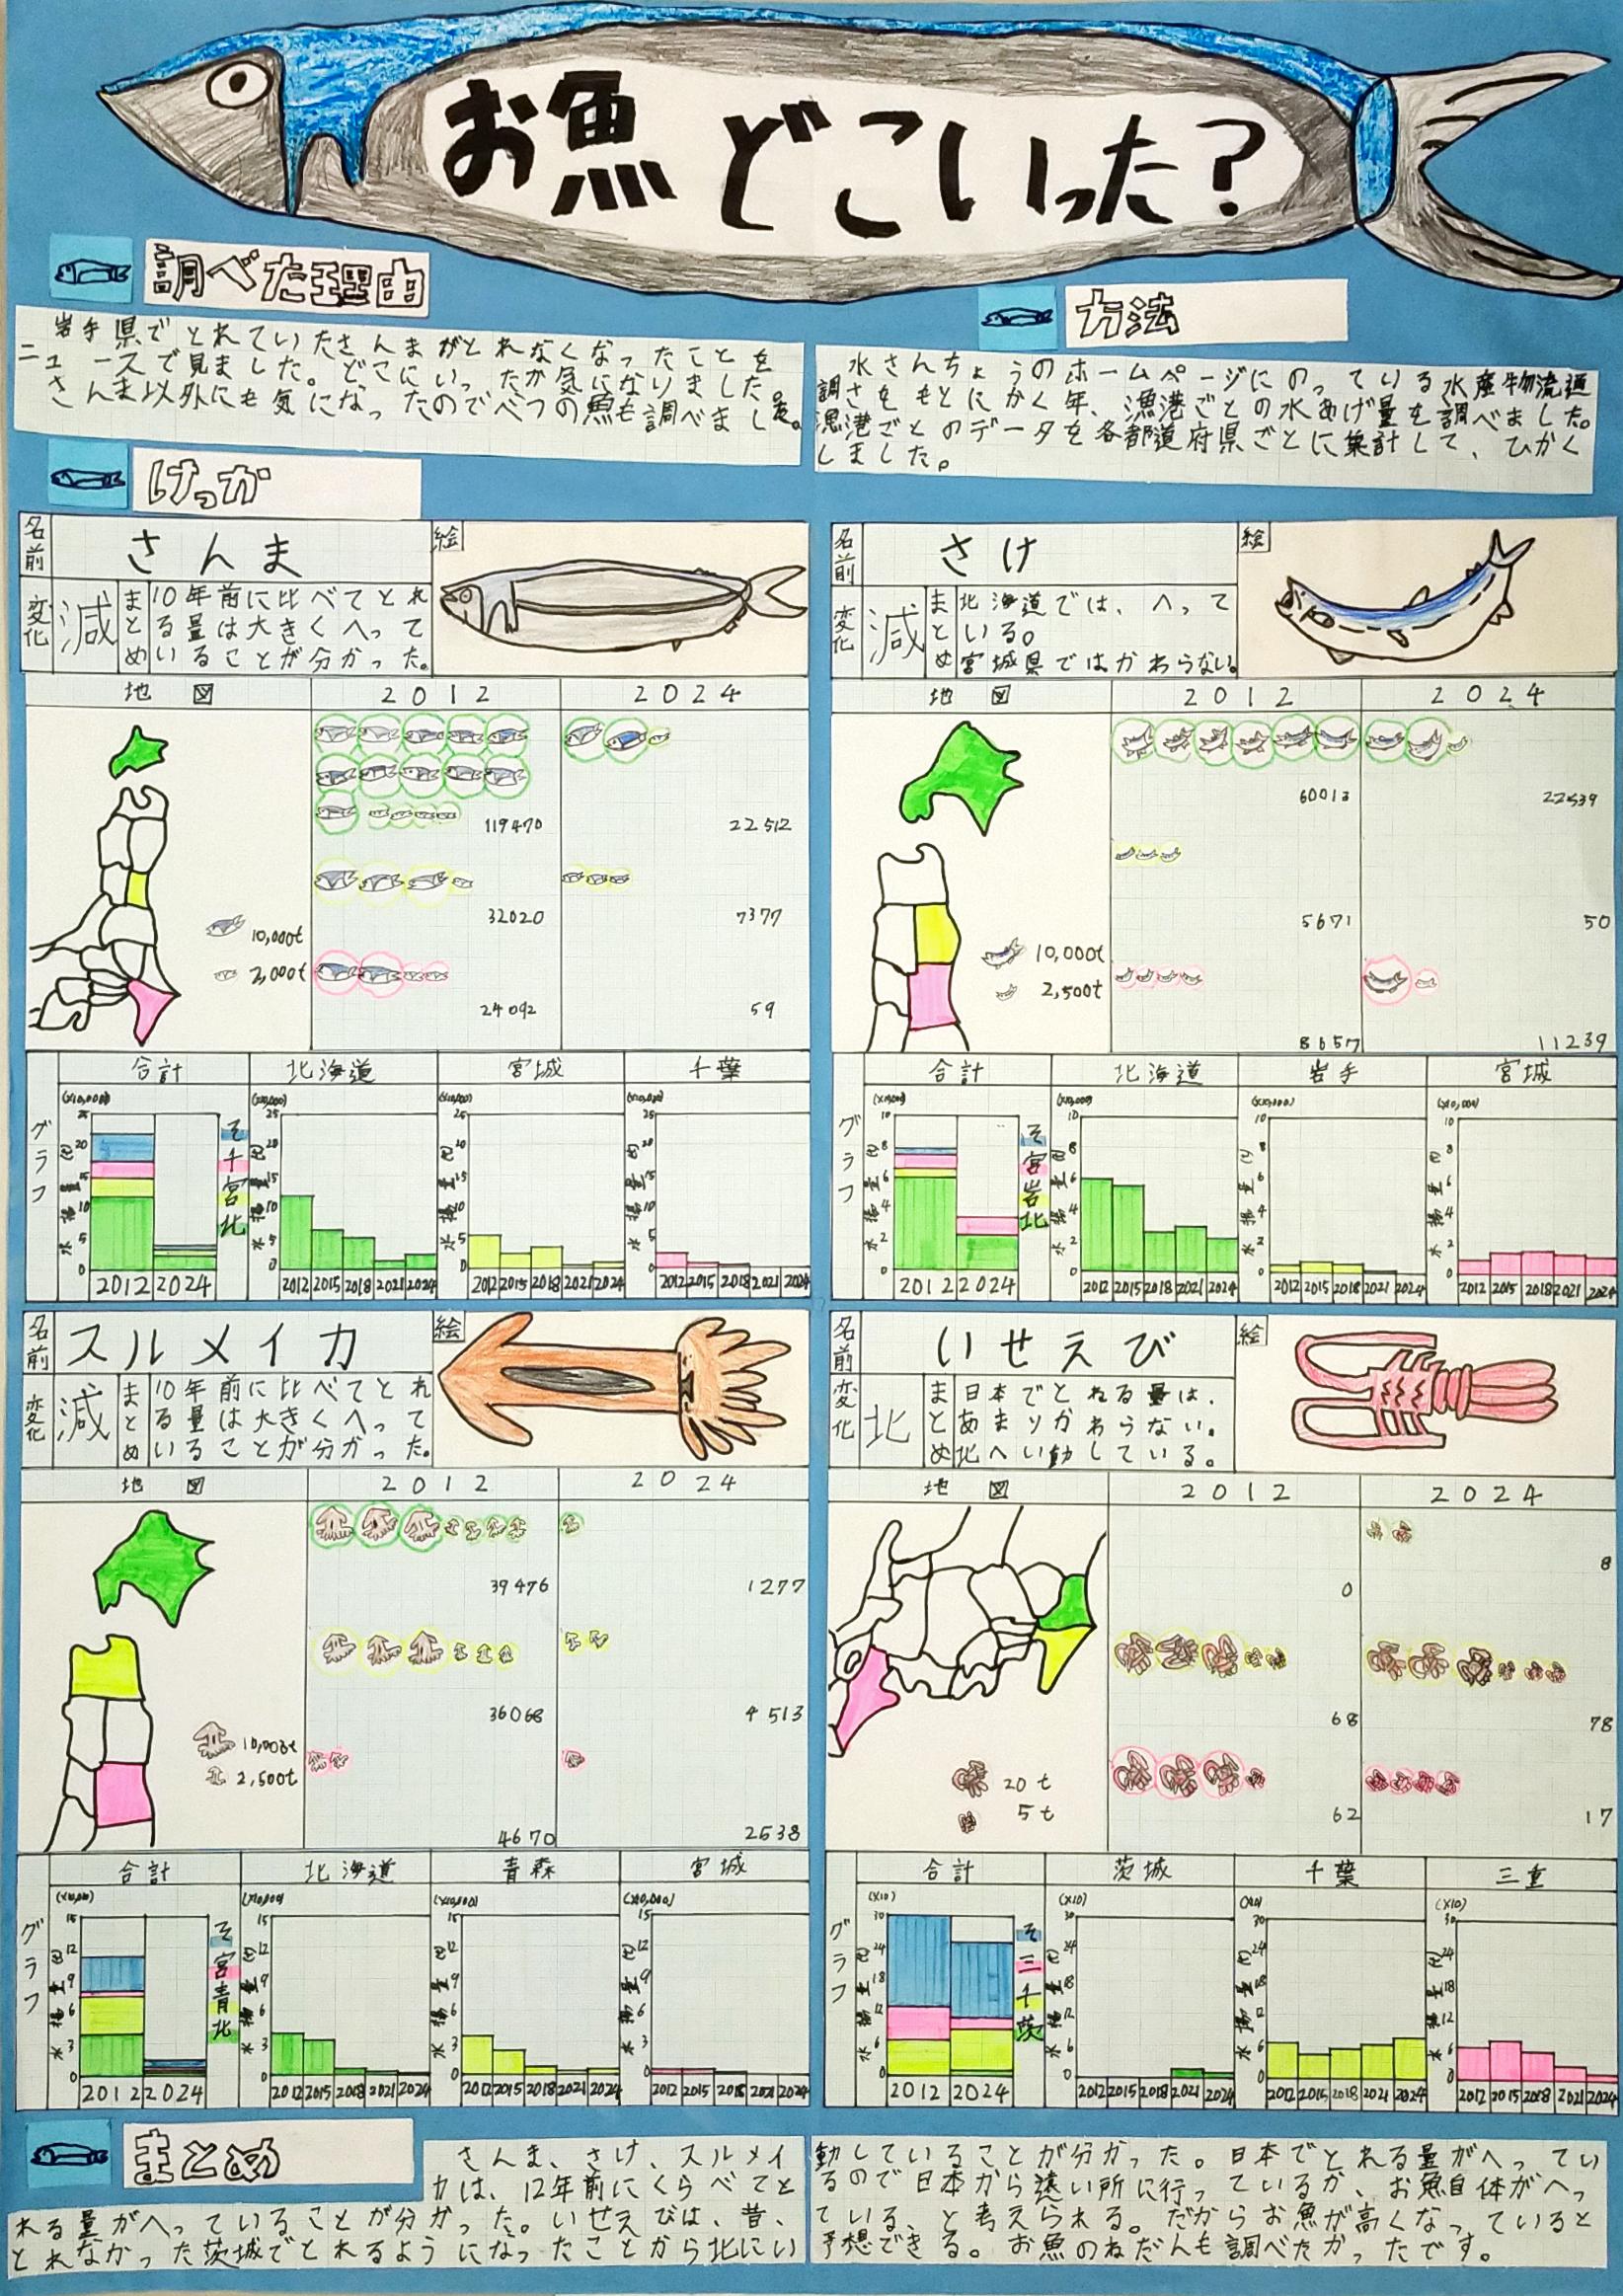 お魚どこいった?
調べた理由
岩手県でとれていたさんまがとれなくなったことを
ニュースで見ました。どこにいったか気になりました。
さんま以外にも気になったのでべつの魚も調べました。
方法
水さんちょうのホームページにのっている水産物流通
調さをもとにかく年、漁港ごとの水あげ量を調べました。
漁港ごとのデータを各都道府県ごとに集計して、ひかく
しました。
けっか
名前 さんま 絵
変化 減 まとめ
10年前に比べてとれ
る量は大きくへって
いることが分かった。
地図 2012 2024
119470 22512
32020 7377
24092 59
10,000t
2,000t
グラフ 合計 北海道 宮城 千葉
(×10,000) (×10,000) (×10,000) (×10,000)
水揚量(t)
25 20 15 10 5 0
そ 千 宮 北
2012 2024
2012 2015 2018 2021 2024
2012 2015 2018 2021 2024
2012 2015 2018 2021 2024
名前 さけ 絵
変化 減 まとめ
北海道では、へって
いる。
宮城県ではかわらない。
地図 2012 2024
60013 22539
5671 50
8657 11239
10,000t
2,500t
グラフ 合計 北海道 岩手 宮城
(×10,000) (×10,000) (×10,000) (×10,000)
水揚量(t)
10 8 6 4 2 0
そ 宮 岩 北
2012 2024
2012 2015 2018 2021 2024
2012 2015 2018 2021 2024
2012 2015 2018 2021 2024
名前 スルメイカ 絵
変化 減 まとめ
10年前に比べてとれ
る量は大きくへって
いることが分かった。
地図 2012 2024
39476 1277
36068 4513
4670 2538
10,000t
2,500t
グラフ 合計 北海道 青森 宮城
(×10,000) (×10,000) (×10,000) (×10,000)
水揚量(t)
15 12 9 6 3 0
そ 宮 青 北
2012 2024
2012 2015 2018 2021 2024
2012 2015 2018 2021 2024
2012 2015 2018 2021 2024
名前 いせえび 絵
変化 北 まとめ
日本でとれる量は、
あまりかわらない。
北へい動している。
地図 2012 2024
0 8
68 78
62 17
20t
5t
グラフ 合計 茨城 千葉 三重
(×10) (×10) (×10) (×10)
水揚量(t)
30 24 18 12 6 0
そ 三 千 茨
2012 2024
2012 2015 2018 2021 2024
2012 2015 2018 2021 2024
2012 2015 2018 2021 2024
まとめ
さんま、さけ、スルメイ
カは、12年前にくらべてと
れる量がへっていることが分かった。いせえびは、昔、
とれなかった茨城でとれるようになったことから北にい
動していることが分かった。日本でとれる量がへってい
るので日本から遠い所に行っているか、お魚自体がへっ
ている、と考えられる。だからお魚が高くなっていると
予想できる。お魚のねだんも調べたかったです。